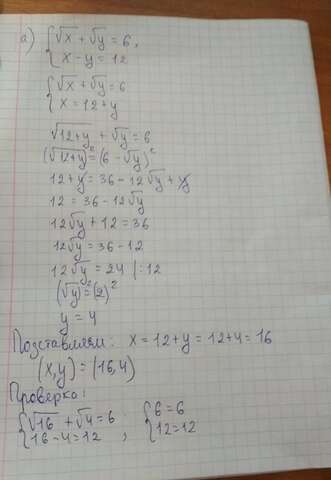 а) { √x + √y = 6,
x - y = 12
{ √x + √y = 6
x = 12 + y
√12+y + √y = 6
(√12+y)² = (6 - √y)²
12 + y = 36 - 12√y + y
12 = 36 - 12√y
12√y + 12 = 36
12√y = 36 - 12
12√y = 24 |:12
(√y)² = (2)²
y = 4
Подставляем: x = 12 + y = 12 + 4 = 16
(x, y) = (16, 4)
Проверка:
{ √16 + √4 = 6 { 6 = 6
16 - 4 = 12 ; 12 = 12